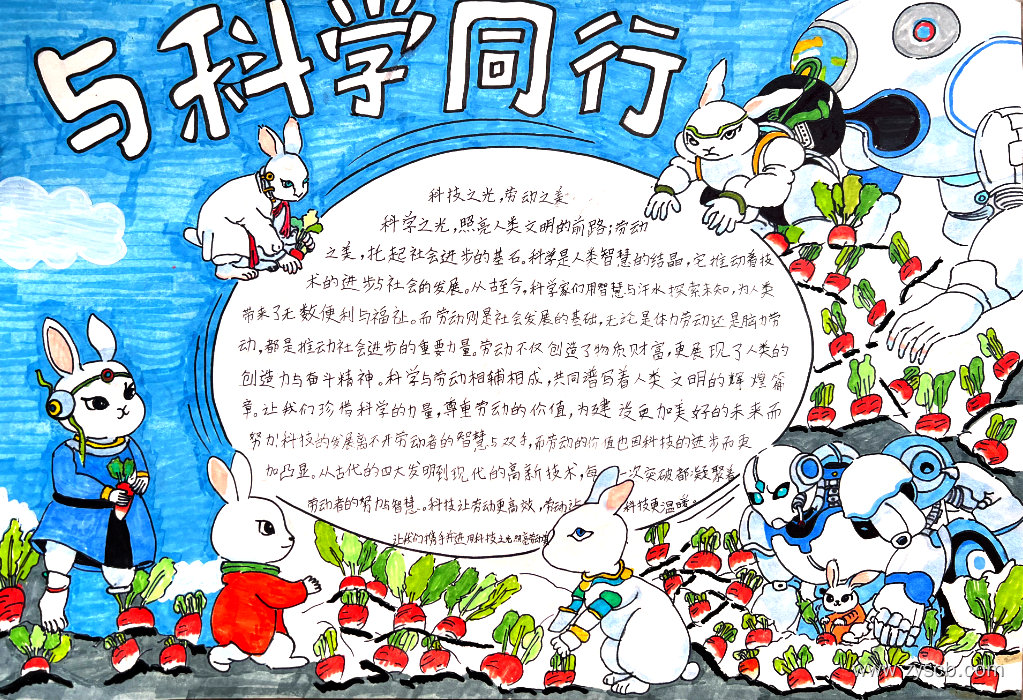 与科学同行
科技之光,劳动之美
科学之光,照亮人类文明的前路;劳动
之美,托起社会进步的基石。科学是人类智慧的结晶,它推动着技
术的进步与社会的发展。从古至今,科学家们用智慧与汗水探索未知,为人类
带来了无数便利与福祉。而劳动则是社会发展的基础,无论是体力劳动还是脑力劳
动,都是推动社会进步的重要力量。劳动不仅创造了物质财富,更展现了人类的
创造力与奋斗精神。科学与劳动相辅相成,共同谱写着人类文明的辉煌篇
章。让我们珍惜科学的力量,尊重劳动的价值,为建设更加美好的未来而
努力!科技的发展离不开劳动者的智慧与双手,而劳动的价值也因科技的进步而更
加凸显。从古代的四大发明到现代的高新技术,每一次突破都凝聚着
劳动者的努力与智慧。科技让劳动更高效,劳动让科技更温暖
让我们携手并进,用科技之光照亮劳动
www.zyscb.com